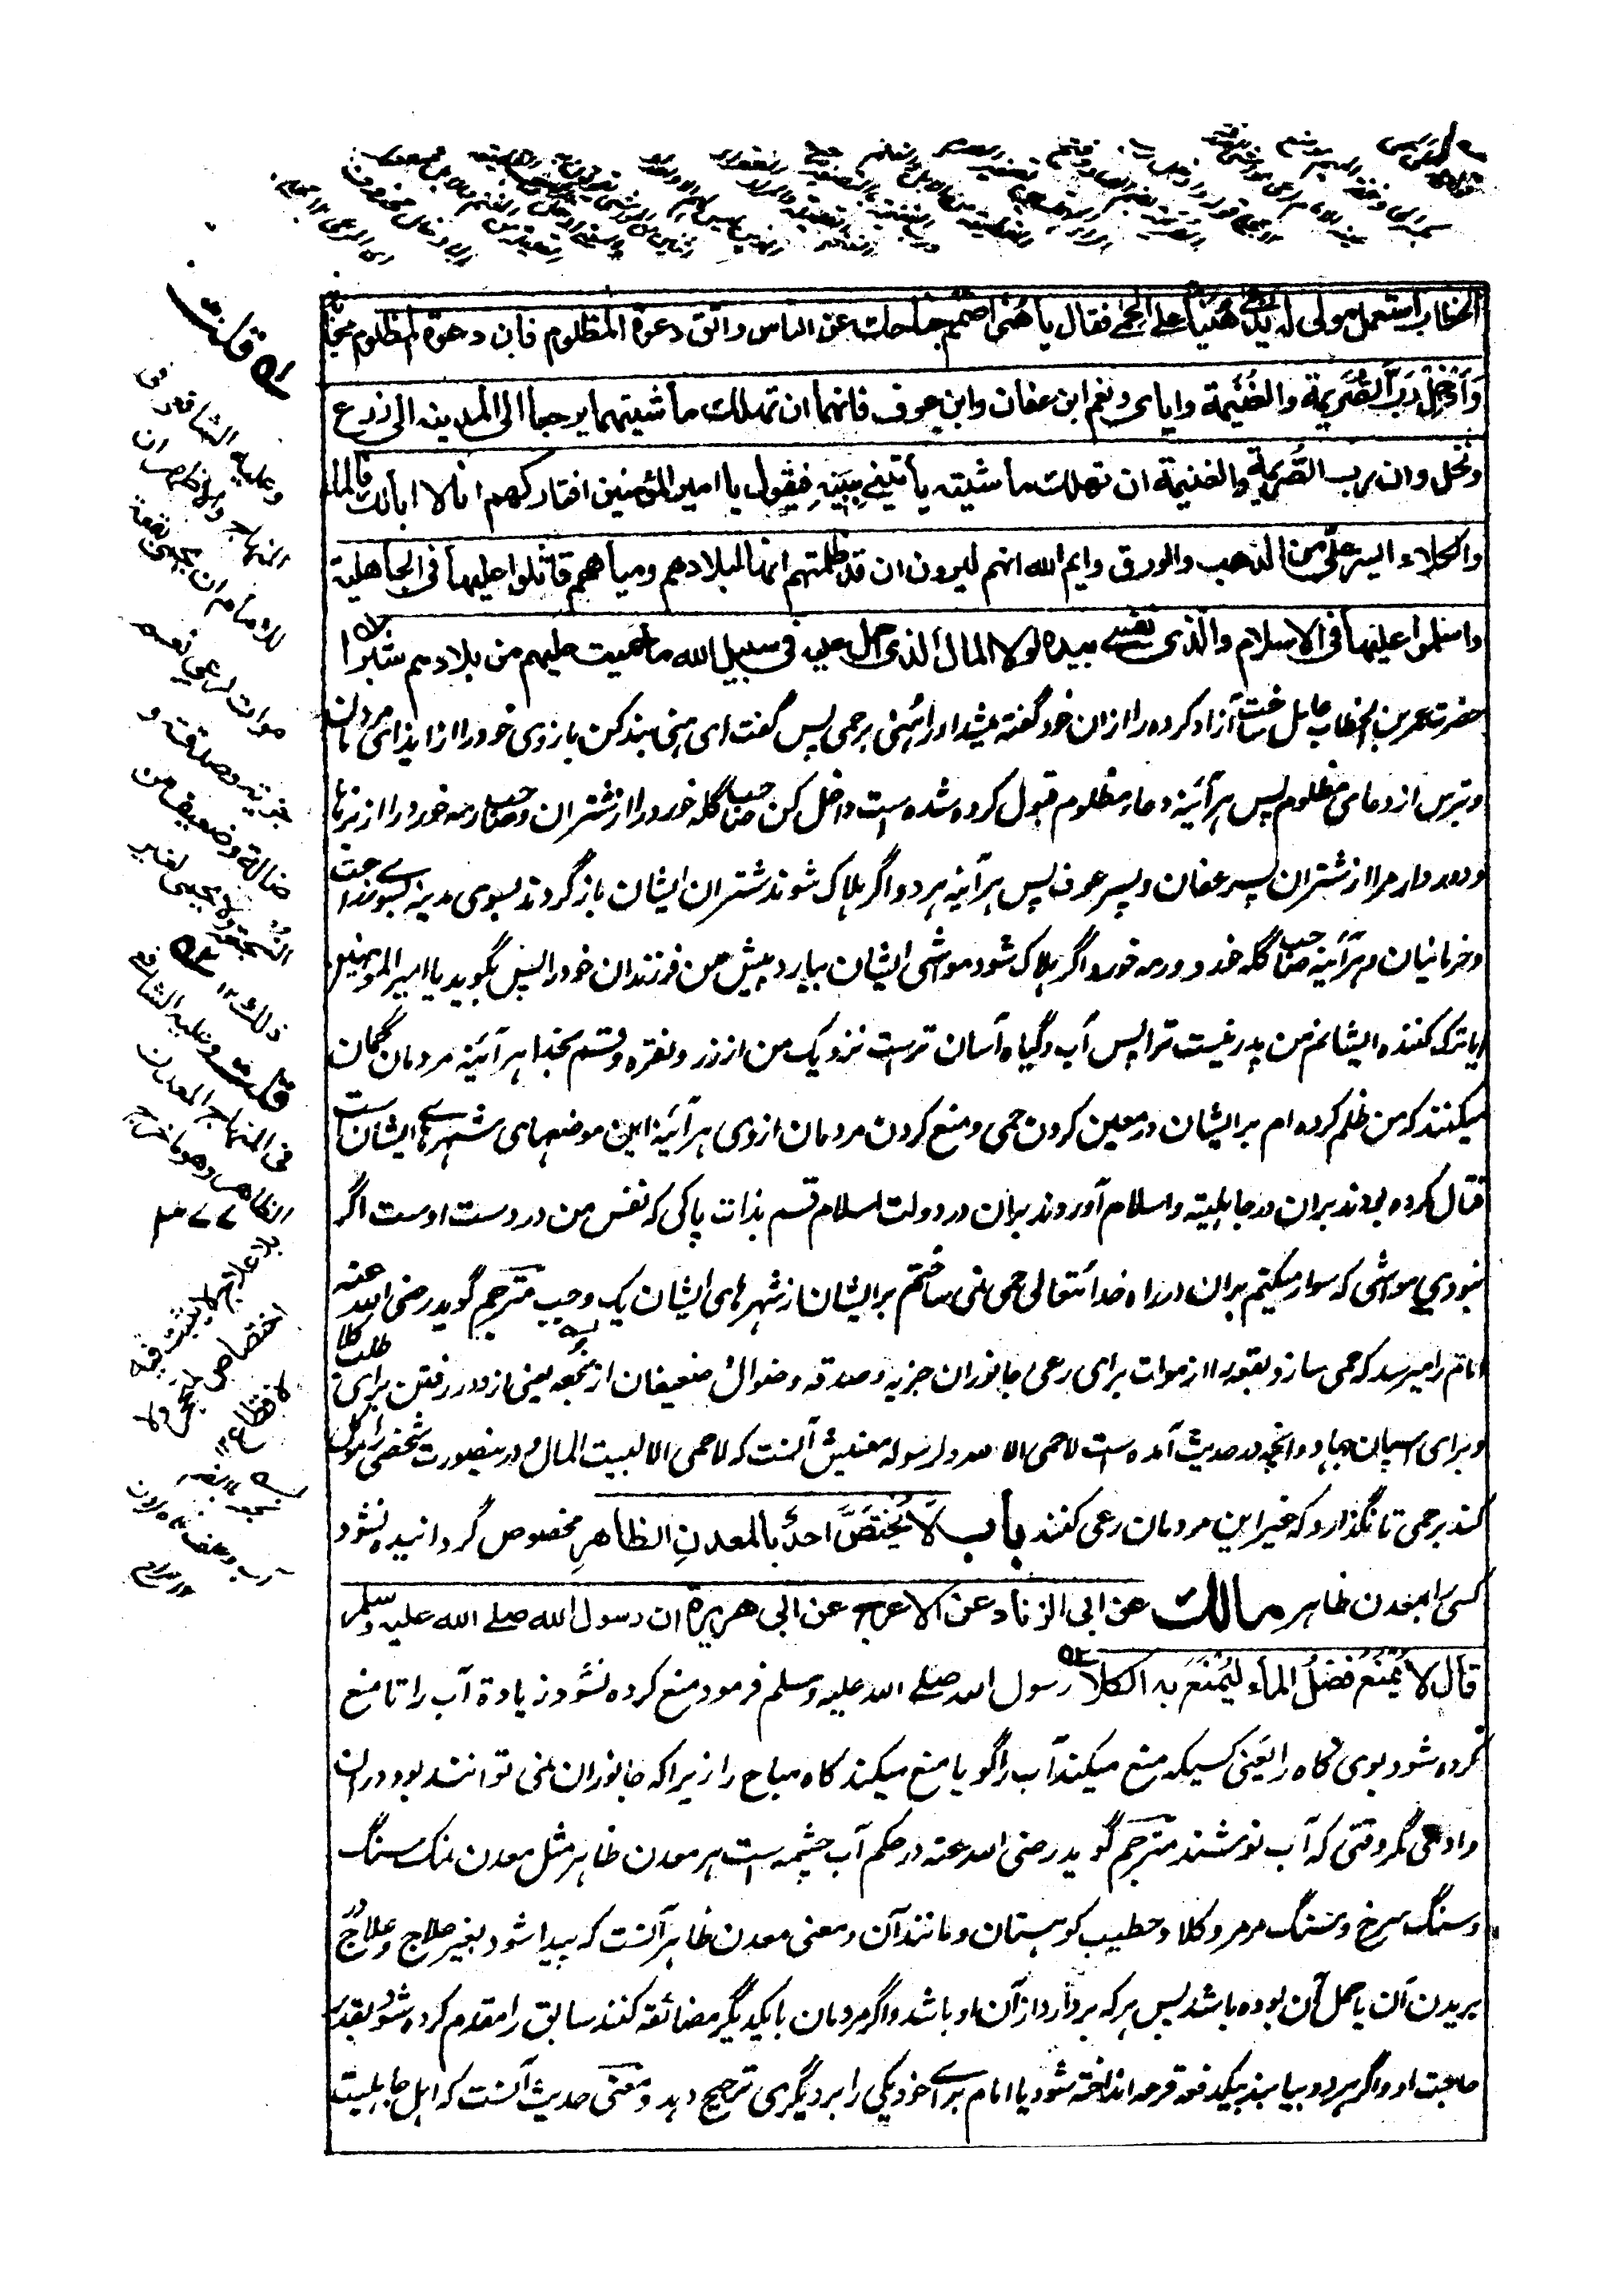 الخطاب استعمل مولى له يدعى هنيا على الحمى فقال يا هنى اضمم جناحك عن الناس واتق دعوة المظلوم فان دعوة المظلوم مجابة
وادخل رب الصريمة والغنيمة واياى ونعم ابن عفان وابن عوف فانهما ان تهلك ماشيتهما يرجعا الى المدينه الى زرع
ونخل وان رب الصريمة والغنيمة ان تهلك ماشيته ياتينى ببنيه فيقول يا امير المؤمنين افتاركهم انا لا ابالك فالماء
والكلاء ايسر علىّ من الذهب والورق وايم الله انهم ليرون ان قد ظلمتهم انها لبلادهم ومياههم قاتلوا عليها فى الجاهلية
واسلموا عليها فى الاسلام والذى نفسى بيده لولا المال الذى احمل عليه فى سبيل الله ما حميت عليهم من بلادهم شبرا
حضرت عمر بن الخطاب عامل ساخت آزاد كرده را ازان خود گفته ميشد اورا هنى برحمى پس گفت اى هنى بند كن بازوى خود را از ايذاى مردمان
وبترس از دعاى مظلوم پس هر آئينه دعاء مظلوم قبول كرده شده است وداخل كن صاحب گله خورد را از شتران وصاحب رمه خورد را از بزها
ودور دار مرا از شتران پسر عفان وپسر عوف پس هر آئينه هر دو اگر هلاك شوند شتران ايشان باز گردند بسوى مدينه بسوى زراعت
وخرمانيان وهر آئينه صاحب گله خورد ورمه خورد اگر هلاك شود مواشى ايشان بيارد پيش من فرزندان خود را پس بگويد يا امير المومنين
ايا ترك كننده ايشانم من پدر نيست ترا پس آب وگياه آسان ترست نزديك من از زر ونقره وقسم بخدا هر آئينه مردمان گمان
ميكنند كه من ظلم كرده ام بر ايشان در معين كردن حمى ومنع كردن مردمان ازوى هر آئينه اين موضعهاى شهرهاى ايشان ست
قتال كرده بودند بران در جاهليته واسلام آوردند بران در دولت اسلام قسم بذات پاكى كه نفس من در دست اوست اگر
نبودي مواشى كه سوار ميكنم بران در راه خدا تعالى حمى نمى ساختم بر ايشان از شهرهاى ايشان يك وجب مترجم گويد رضى الله عنه
امام را ميرسد كه حمى سازد بقعه را از موات براى رعى جانوران جزيه وصدقه وضوال ضعيفان از نجعه يعنى از دور رفتن براى طلب كلا
وبراى اسپان جهاد وانچه در حديث آمده است لا حمى الا لله ولرسوله معنيش آنست كه لا حمى الا لبيت المال ودرينصورت شخصى را موكل
كند برحمى تا نگذارد كه غير اين مردمان رعى كنند باب لا يُختَصَّ احدٌ بالمعدنِ الظاهرِ مخصوص گردانيده نشود
كسى را بمعدن ظاهر مالك عن ابى الزناد عن الاعرج عن ابى هريرة ان رسول الله صلے الله عليه وسلم
قال لا يُمنَعُ فضلُ الماء ليُمنَعَ به الكلأ رسول الله صلے الله عليه وسلم فرمود منع كرده نشود زيادة آب را تا منع
كرده شود بوى گاه را يعنى كسيكه منع ميكند آب را گويا منع ميكند كاه مباح را زيراكه جانوران نمى توانند بود دران
وادى مگر وقتى كه آب نوشند مترجم گويد رضى الله عنه در حكم آب چشمه است هر معدن ظاهر مثل معدن نمك سنگ
وسنگ سرخ وسنگ مرمر وكلاء وحطيب كوهستان ومانند آن ومعنى معدن ظاهر آنست كه پيدا شود بغير علاج وعلاج در
بريدن آن يا حمل آن بوده باشد پس هر كه بردارد از آن او باشد واگر مردمان با يكديگر مضائقه كنند سابق را مقدم كرده شود بقدر
حاجت او واگر هر دو بيايند بيكدفعه قرعه انداخته شود يا امام براے خود يكى را بر ديگرى ترجيح دهد ومعنى حديث آنست كه اهل جاهليت
قلت
وعليه الشافعى فى
المنهاج والاظهر ان
للامام ان يحمى بقعة
موات لرعي نعم
جزية وصدقة و
ضالة وضعيف عن
النجعة ولا يحمى لغير
ذلك ١٢
قلت وعليه الشافعى
فى المنهاج المعدن
الظاهر وهو ما خرج
بلا علاج لا يثبت فيه
اختصاص بتحجر ولا
اقطاع ١٢